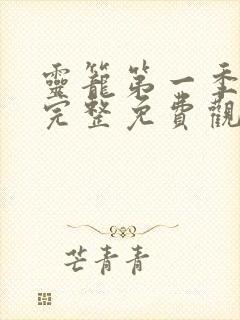 靈籠第一季
完整免費觀
芒青青